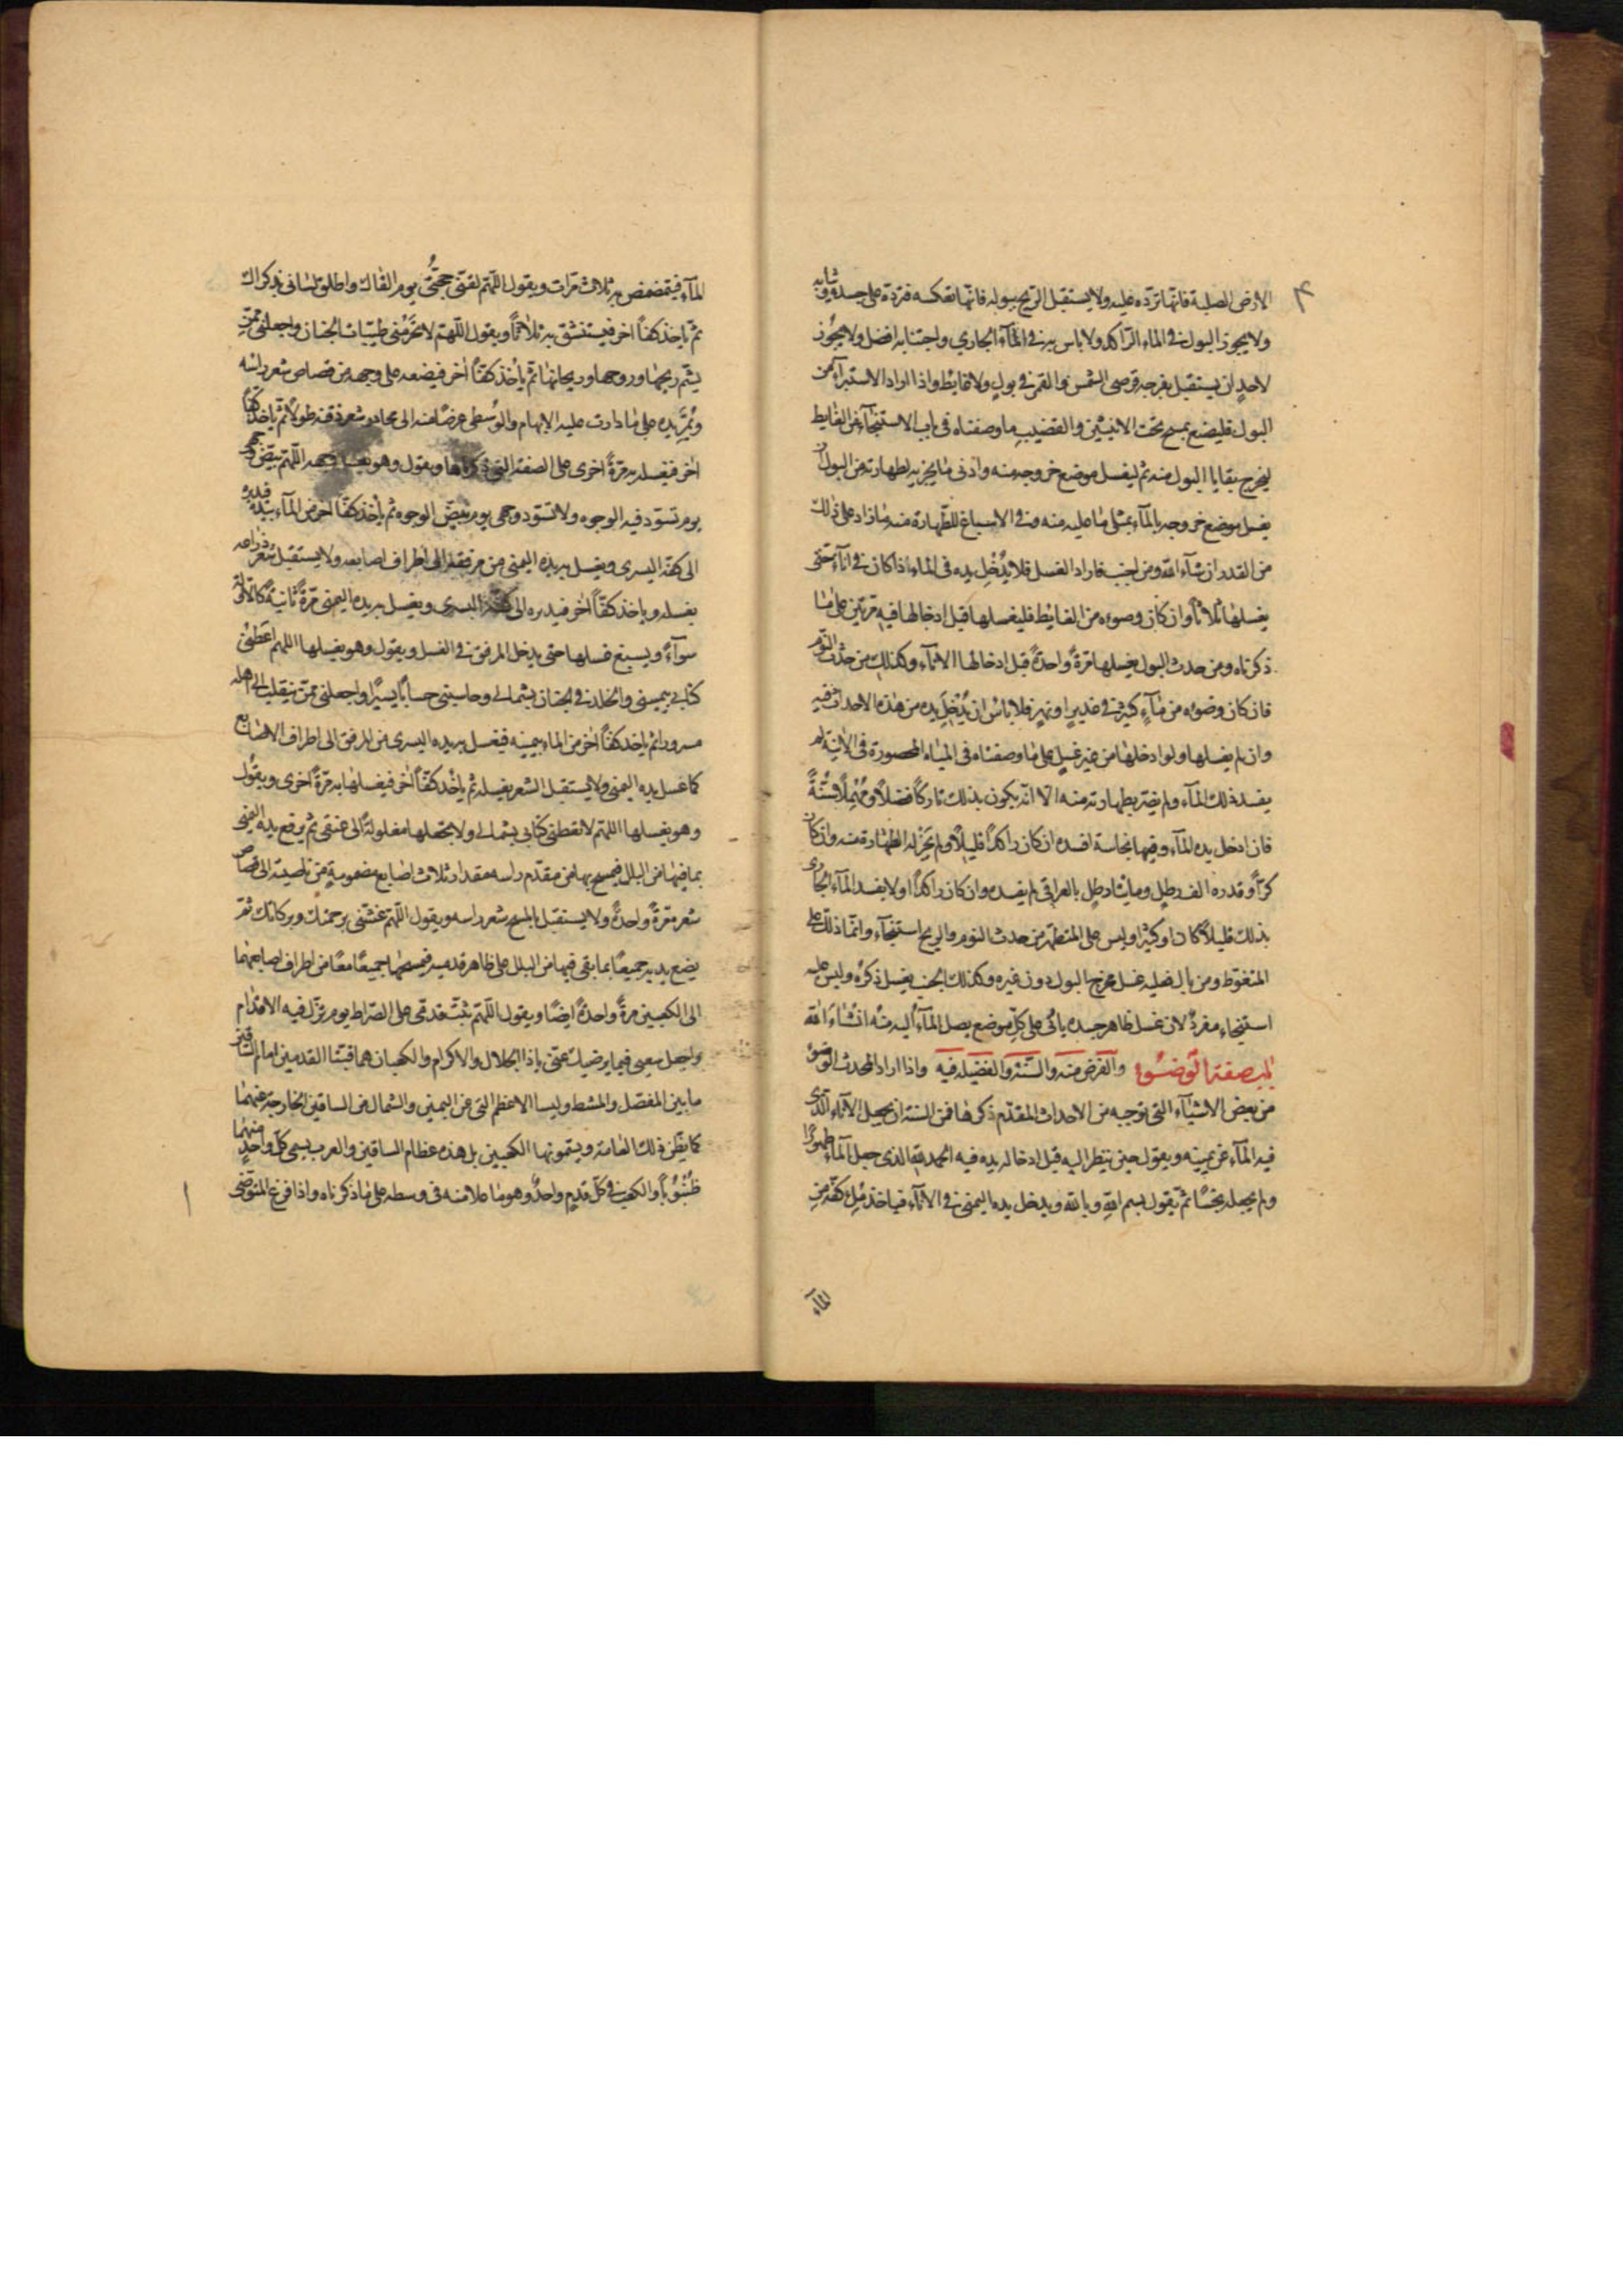 ۴
الارض الصلبة فانّها تردّه عليه ولا يستقبل الريح ببوله فانّها تعكسه فتردّه على جسده وثيابه
ولا يجوز البول في الماء الرّاكد ولا باس به في المآء الجاري واجتنابه افضل ولا يجُوز
لاحدٍ ان يستقبل بفرجه قرصى الشمس والقمر في بولٍ ولا غايطٍ واذا اراد الاستبراء من
البول فليضع بمسح تحت الانثيين والقضيب ما وصفناه في باب الاستنجآء من الغايط
ليخرج بقايا البول منه ثم ليغسل موضع خروجه منه وادنى ما يجزيه لطهارته من البول ان
يغسل موضع خروجه بالمآء بمثلى ما عليه منه وفي الاسباغ للطّهارة منه ما زاد على ذلك
من القدر ان شآء الله ومن اجنب فاراد الغسل فلا يُدْخِل يده في الماء اذا كان في انآءٍ حتى
يغسلها ثلاثاً وان كان وضوءه من الغايط فليغسلها قبل ادخالها فيه مرّتين على ما
ذكرناه ومن حدث البول يغسلها مرّةً واحدةً قبل ادخالها الانآء وكذلك من حدث النوم
فان كان وضوءه من مآءٍ كثيرٍ في غديرٍ او نهرٍ فلا باس ان يُدْخِل يده من هذه الاحداث فيه
وان لم يغسلها ولو ادخلها من غير غسلٍ على ما وصفناه في المياه المحصورة في الآنية لم
يفسد ذلك المآء ولم يضرّ بطهارته منه الا انّه يكون بذلك تاركاً فضلاً ومُهْمِلاً سُنّةً
فان ادخل يده المآء وفيها نجاسة افسده ان كان راكداً قليلاً ولم يَجُزْ له الطهارة منه وان كان
كرّاً وقدره الف رطلٍ ومايتا رطلٍ بالعراقي لم يفسده وان كان راكداً ولا يفسد المآء الجارى
بذلك قليلاً كان او كثيرا وليس على المتطهّر من حدث النوم والريح استنجآء وانّما ذلك على
المتغوّط ومن بال فعليه غسل مخرج البول دون غيره وكذلك الجنب يغسل ذكرَهُ وليس عليه
استنجاء مفردٌ لان غسل ظاهر جسده ياتى على كلّ موضع يصل المآء اليه منه انْ شَاءَ الله
باب صفة الوضوء والفرض منه والسّنّة والفضيلة فيه واذا اراد المحدث الوضوء
من بعض الاشيآء التي توجبه من الاحداث المقدّم ذكرها فمن السنة ان يجعل الاناء الّذى
فيه المآء عن يمينه ويقول حين ينظر اليه قبل ادخاله يده فيه الحمد لله الذى جعل المآء طهوراً
ولم يجعله نجسًا ثمّ يقول بسم الله وبالله ويدخل يده اليمنى في الانآء فياخذ مِلءَ كفّه من
المآء
المآء فيتمضمض به ثلاث مرّات ويقول اللّهم لقنّى حجّتى يوم القاك واطلق لسانى بذكراك
ثمّ ياخذ كفّاً آخر فيستنشق به ثلاثاً ويقول اللّهم لا تحَرِّمنى طيّبات الجنان واجعلنى ممّن
يشمّ ريحها وروحها وريحانها ثمّ ياخُذ كفّاً آخر فيضعه على وجهه من قصاص شعر راسه
ويُمرّ يده على ما دارت عليه الابهام والوُسطى عرضًا منه الى محادر شعر ذقنه طولاً ثم ياخذ كفّاً
آخر فيغسله به مرّةً اخرى على الصفة التى ذكرناها ويقول وهو يغسل وجهه اللّهم بيّض وجهى
يوم تسوّد فيه الوجوه ولا تسوّد وجهى يوم تبيضّ الوجوه ثم ياخذ كفّاً آخر من المآء بيده فيديره
الى كفّه اليسرى ويغسل به يده اليمنى من مرفقه الى اطراف اصابعه ولا يستقبل شعر ذراعه
بغسله وياخذ كفّاً آخر فيديره الى كفّه اليسرى ويغسل به يده اليمنى مرّةً ثانيةً كالاُولى
سوآءً ويسبغ غسلها حتى يدخل المرفق في الغسل ويقول وهو يغسلها اللهم اعطنى
كتابى بيمينى والخلد في الجنان بشمالى وحاسبنى حساباً يسيراً واجعلنى ممّن ينقلب الى اهله
مسرورا ثم ياخذ كفّاً آخر من الماء بيمينه فيغسل به يده اليسرى من المرفق الى اطراف الاصابع
كما غسل يده اليمنى ولا يستقبل الشعر بغسله ثم ياخُذ كفّاً آخر فيغسلها به مرّةً اُخرى ويقول
وهو يغسلها اللهم لا تعطنى كتابى بشمالى ولا تجعلها مغلولةً الى عنقى ثم يرفع يده اليمنى
بما فيها من البلل فيمسح بها من مقدّم راسه مقدار ثلاث اصابع مضمومةٍ من ناصيته الى قصاص
شعره مرّةً واحدةً ولا يستقبل بالمسح شعر راسه ويقول اللّهم غشّنى برحمتك وبركاتك ثمّ
يضع يديه جميعًا بما بقى فيها من البلل على ظاهر قدميه فيمسحهما جميعًا معًا من اطراف اصابعهما
الى الكعبين مرةً واحدةً ايضًا ويقول اللّهم ثبّت قدمَى على الصّراط يوم تزلّ فيه الاقدام
واجعل سعيى فيما يرضيك عنّى ياذا الجلال والاكرام والكعبان هما قبّتا القدمين امام الساقين
ما بين المفصل والمشط وليسا الاعظم التى عن اليمين والشمال من الساقين الخارجة عنهما
كما يظنّ ذلك العامة ويسمّونها الكعبين بل هذه عظام الساقين والعرب يسمى كلّ واحدٍ منهما
ظُنْبُوباً والكعب في كلّ قدمٍ واحدٌ وهو ما علا منه في وسطه على ما ذكرناه واذا فرغ المتوضّى